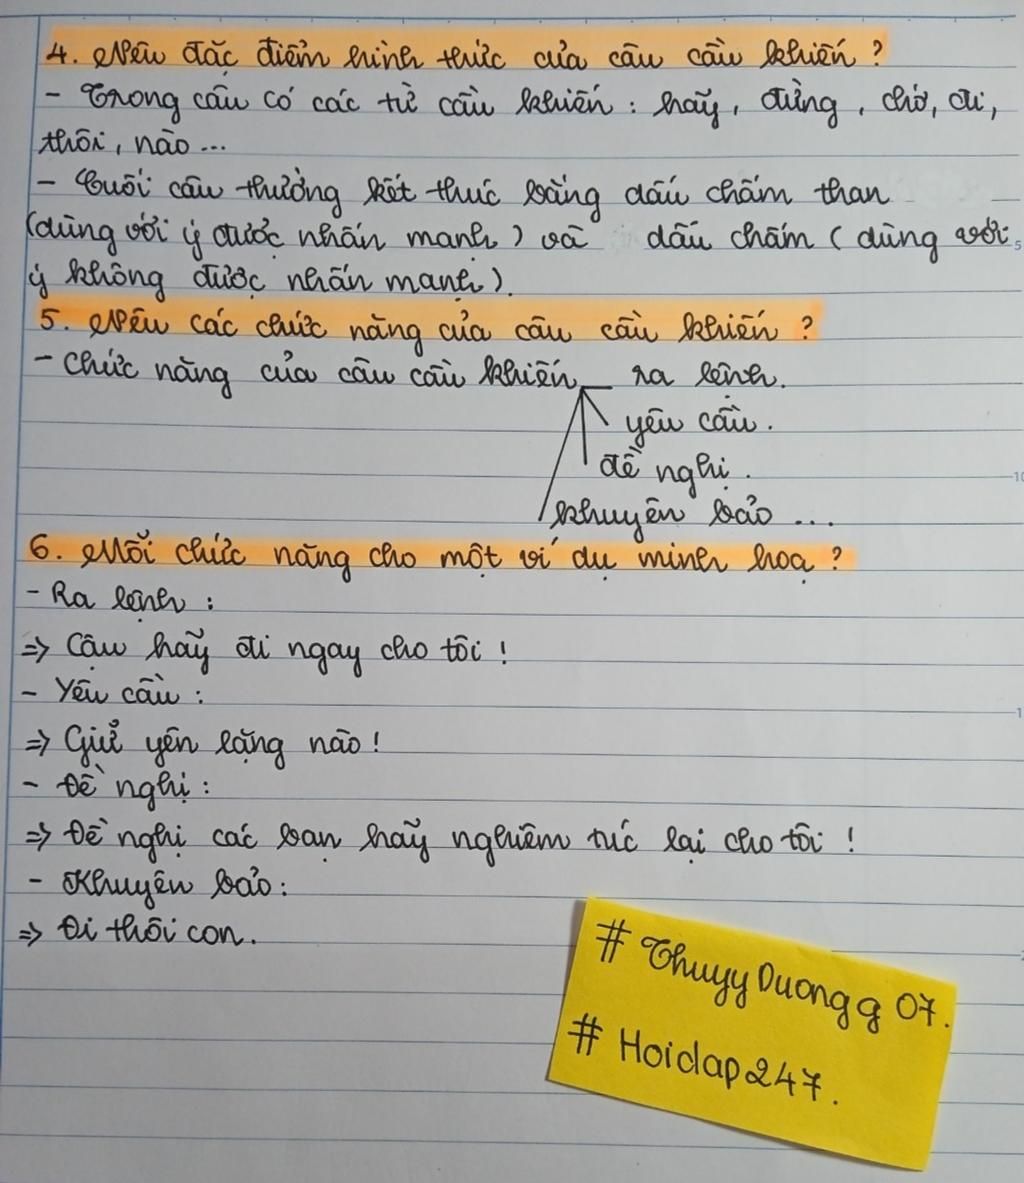 4. Nêu đặc điểm hình thức của câu cầu khiến ?
- Trong câu có các từ cầu khiến : hãy, đừng, chớ, đi,
thôi, nào...
- Cuối câu thường kết thúc bằng dấu chấm than
(dùng với ý được nhấn mạnh) và dấu chấm (dùng với
ý không được nhấn mạnh).
5. Nêu các chức năng của câu cầu khiến ?
- Chức năng của câu cầu khiến ra lệnh.
yêu cầu.
đề nghị.
khuyên bảo ...
6. Mỗi chức năng cho một ví dụ minh hoạ ?
- Ra lệnh :
=> Cậu hãy đi ngay cho tôi !
- Yêu cầu :
=> Giữ yên lặng nào !
- Đề nghị :
=> Đề nghị các bạn hãy nghiêm túc lại cho tôi !
- Khuyên bảo :
=> Đi thôi con.
# ThuyyDuongg 07.
# Hoidap247.